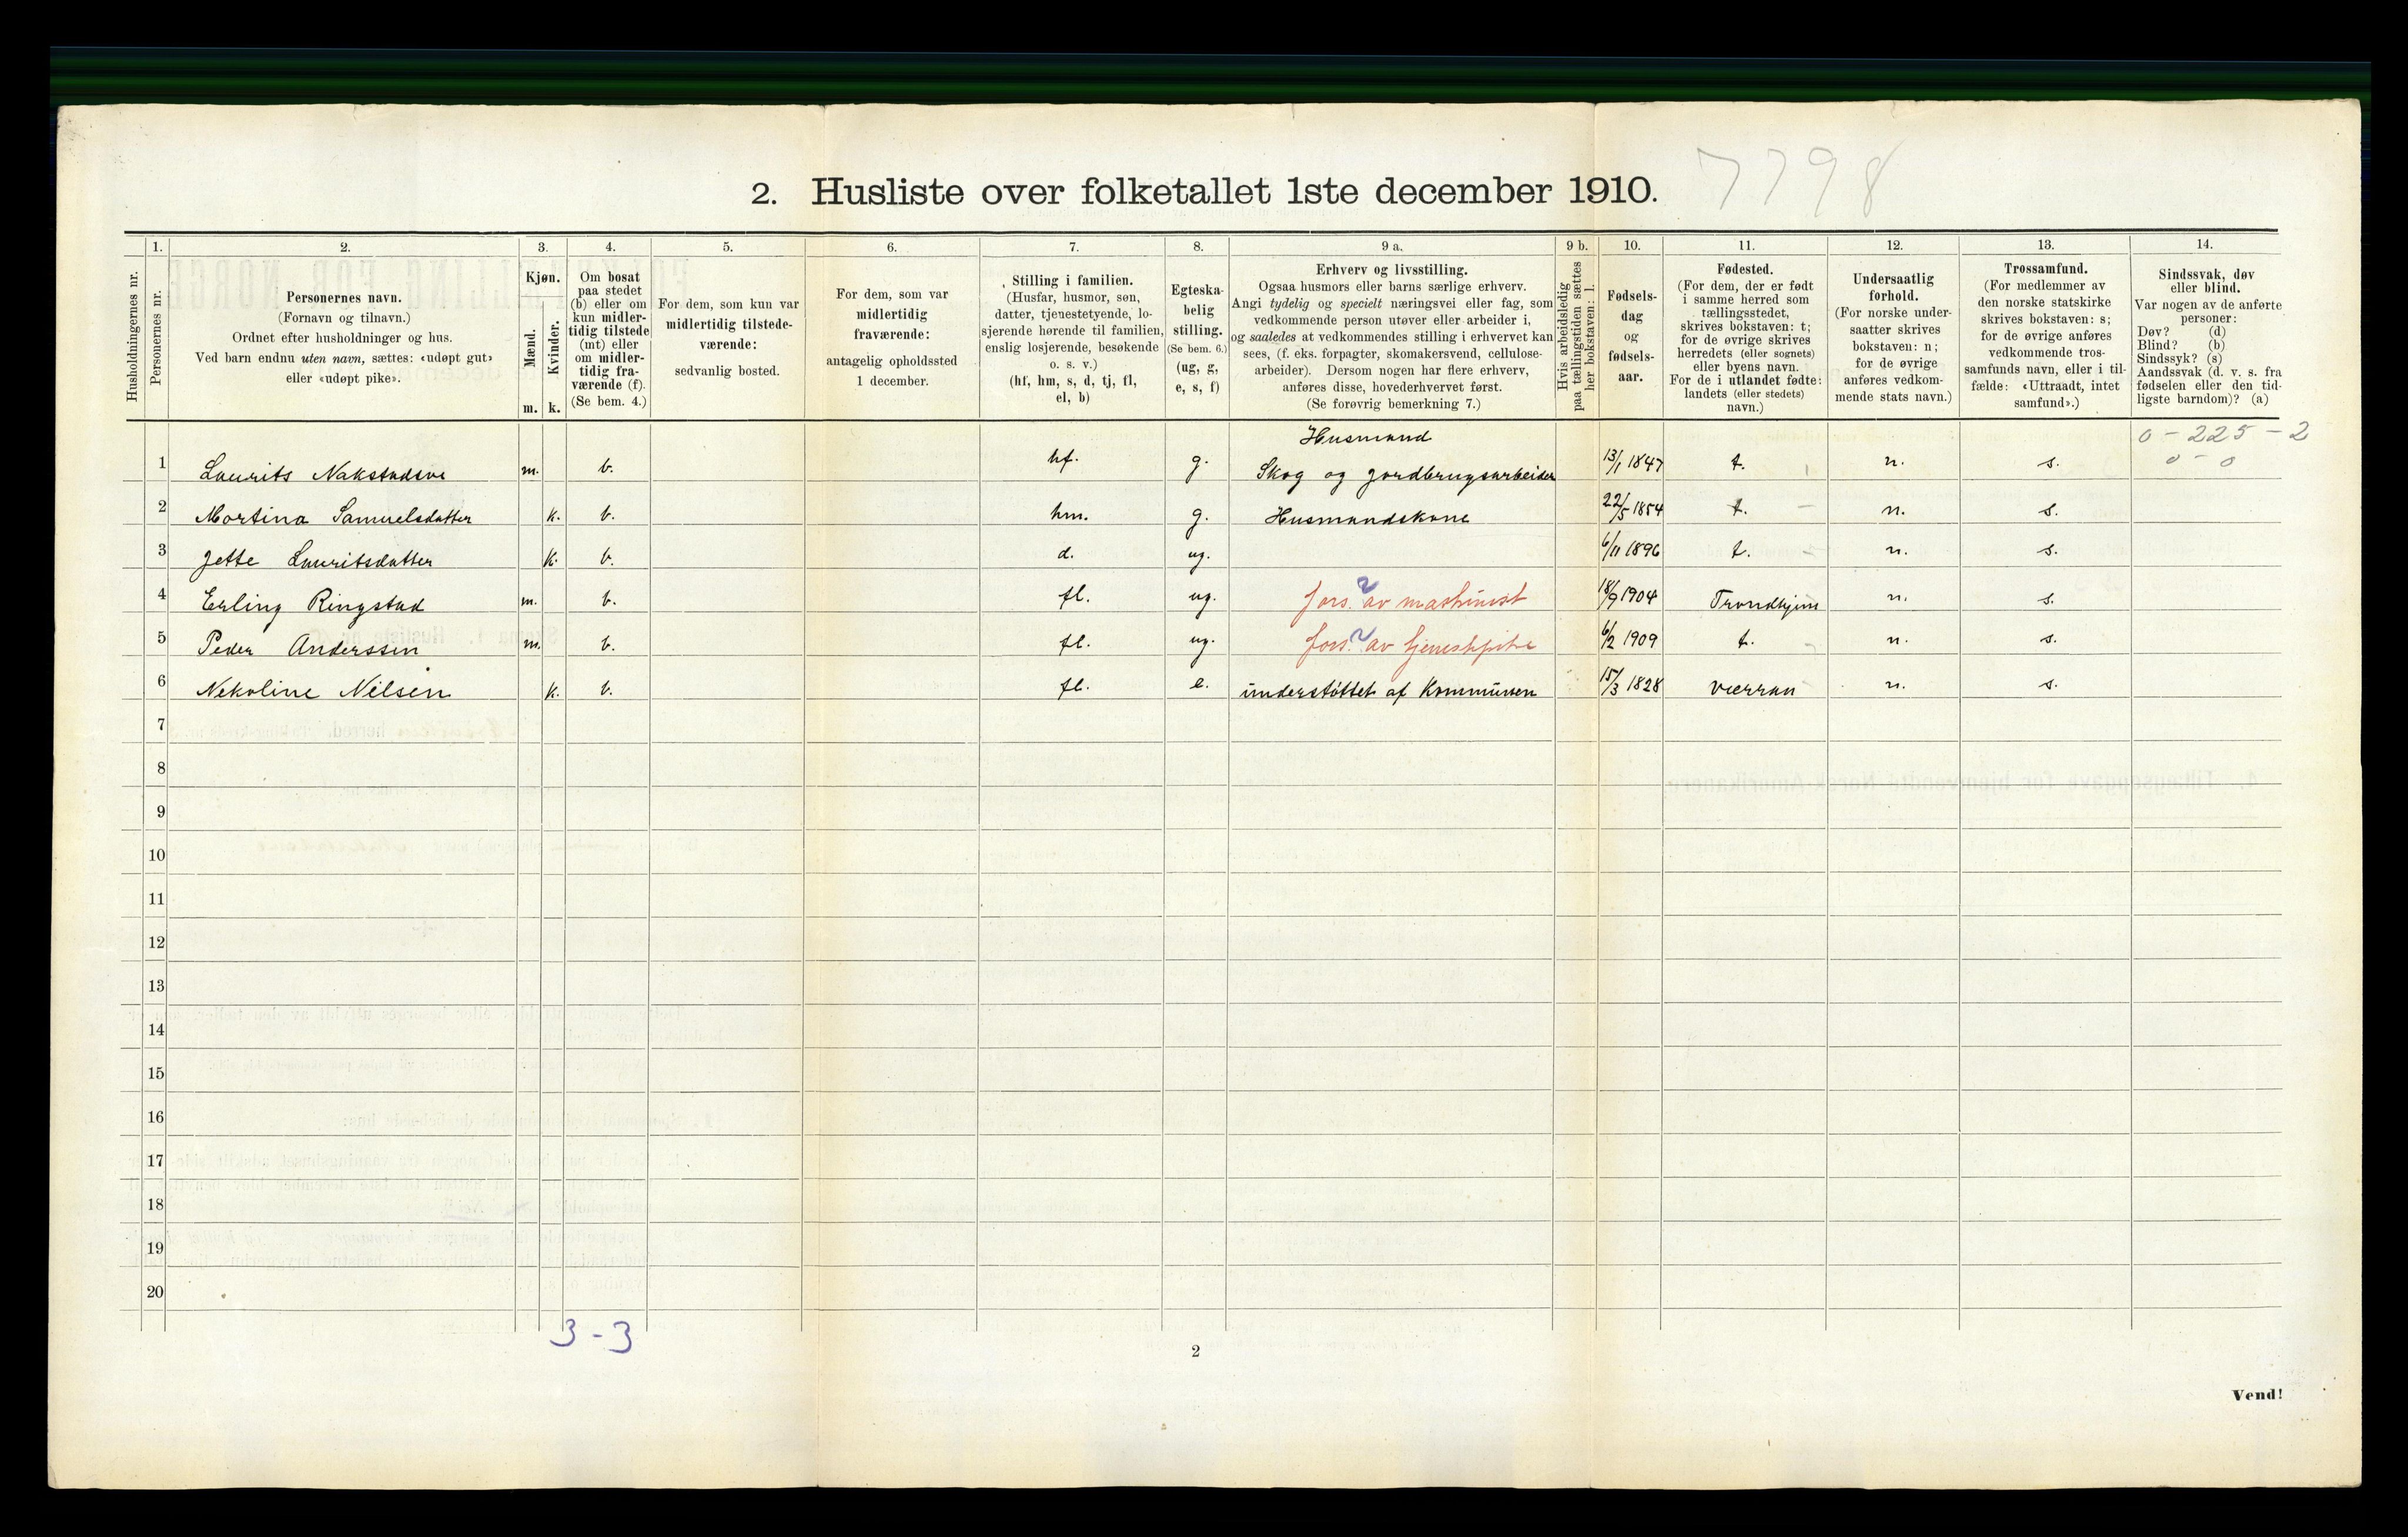 2. Husliste over folketallet 1ste december 1910. 7798
1. 2. 3. 4. 5. 6. 7. 8. 9 a. 9 b. 10. 11. 12. 13. 14.
Husholdningernes nr.
Personernes nr.
Personernes navn.
(Fornavn og tilnavn.)
Ordnet efter husholdninger og hus.
Ved barn endnu uten navn, sættes: «udøpt gut»
eller «udøpt pike».
Kjøn.
Mænd.
Kvinder.
m. k.
Om bosat
paa stedet
(b) eller om
kun midler-
tidig tilstede
(mt) eller
om midler-
tidig fra-
værende (f).
(Se bem. 4.)
For dem, som kun var
midlertidig tilstede-
værende:
sedvanlig bosted.
For dem, som var
midlertidig
fraværende:
antagelig opholdssted
1 december.
Stilling i familien.
(Husfar, husmor, søn,
datter, tjenestetyende, lo-
sjerende hørende til familien,
enslig losjerende, besøkende
o. s. v.)
(hf, hm, s, d, tj, fl,
el, b)
Egteska-
belig
stilling.
(Se bem. 6.)
(ug, g,
e, s, f)
Erhverv og livsstilling.
Ogsaa husmors eller barns særlige erhverv.
Angi tydelig og specielt næringsvei eller fag, som
vedkommende person utøver eller arbeider i,
og saaledes at vedkommendes stilling i erhvervet kan
sees, (f. eks. forpagter, skomakersvend, cellulose-
arbeider). Dersom nogen har flere erhverv,
anføres disse, hovederhvervet først.
(Se forøvrig bemerkning 7.)
Hvis arbeidsledig
paa tællingstiden sættes
her bokstaven: l.
Fødsels-
dag
og
fødsels-
aar.
Fødested.
(For dem, der er født
i samme herred som
tællingsstedet,
skrives bokstaven: t;
for de øvrige skrives
herredets (eller sognets)
eller byens navn.
For de i utlandet fødte:
landets (eller stedets)
navn.)
Undersaatlig
forhold.
(For norske under-
saatter skrives
bokstaven: n;
for de øvrige
anføres vedkom-
mende stats navn.)
Trossamfund.
(For medlemmer av
den norske statskirke
skrives bokstaven: s;
for de øvrige anføres
vedkommende tros-
samfunds navn, eller i til-
fælde: «Uttraadt, intet
samfund».)
Sindssvak, døv
eller blind.
Var nogen av de anførte
personer:
Døv? (d)
Blind? (b)
Sindssyk? (s)
Aandssvak (d. v. s. fra
fødselen eller den tid-
ligste barndom)? (a)
Husmand 0 - 225 - 2
0 - 0
1 Laurits Nakstadsve m. b. hf. g. Skog og jordbrugsarbeider 13/1 1847 t. n. s.
2 Mortina Samuelsdatter k. b. hm. g. Husmandskone 22/5 1854 t. n. s.
3 Jette Lauritsdatter k. b. d. ug. 6/11 1896 t. n. s.
4 Erling Ringstad m. b. fl. ug. fors. av maskinist 18/9 1904 Trondhjem n. s.
5 Peder Anderssen m. b. fl. ug. fors. av tjenestpike 6/2 1909 t. n. s.
6 Nekoline Nilsen k. b. fl. e. understøttet af Kommunen 15/3 1828 Værran n. s.
7
8
9
10
11
12
13
14
15
16
17
18
19
20
3 - 3
2
Vend!